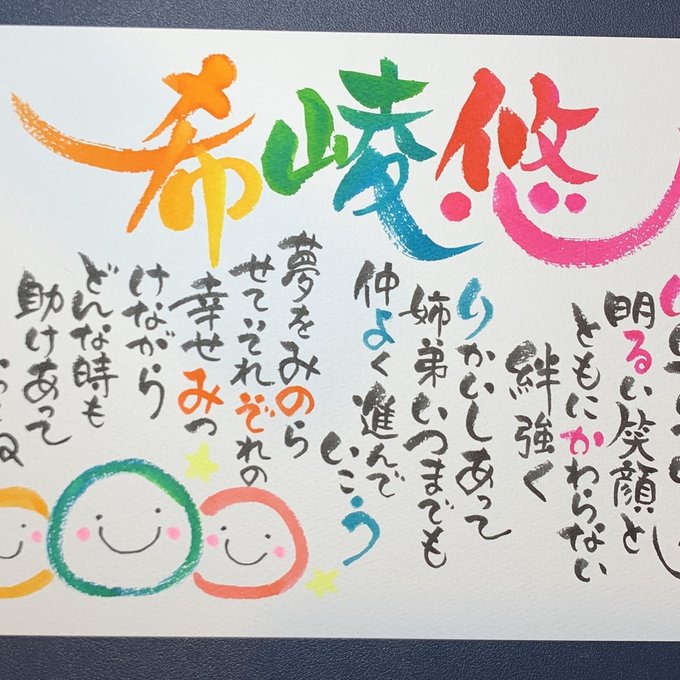 希崚悠
明るい笑顔と
ともにかわらない
絆強く
りかいしあって
姉弟いつまでも
仲よく進んで
いこう
夢をみのら
せて、それぞれの
幸せみつ
けながら
どんな時も
助けあって